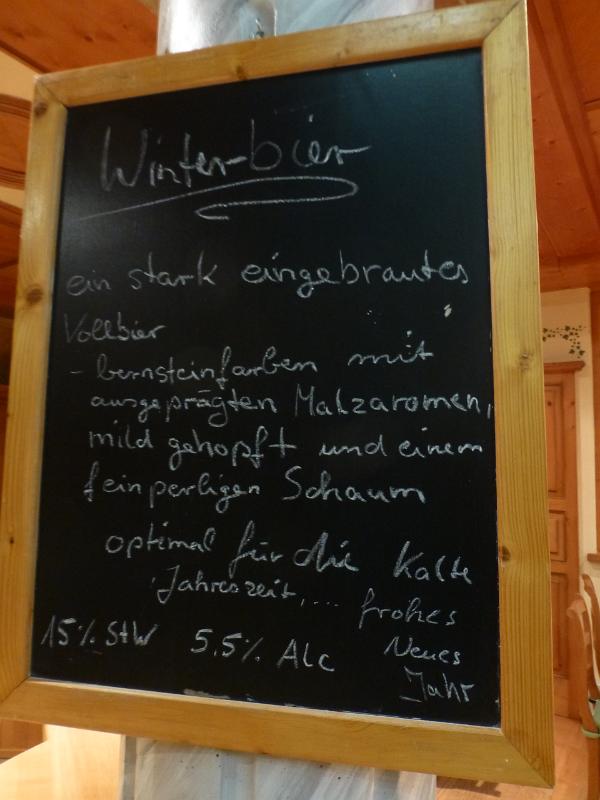 Winter-bier
ein stark eingebrautes
Vollbier
- bernsteinfarben mit
ausgeprägten Malzaromen,
mild gehopft und einem
feinperligen Schaum
optimal für die Kalte
Jahreszeit,... frohes
Neues
Jahr
15% StW 5.5% Alc